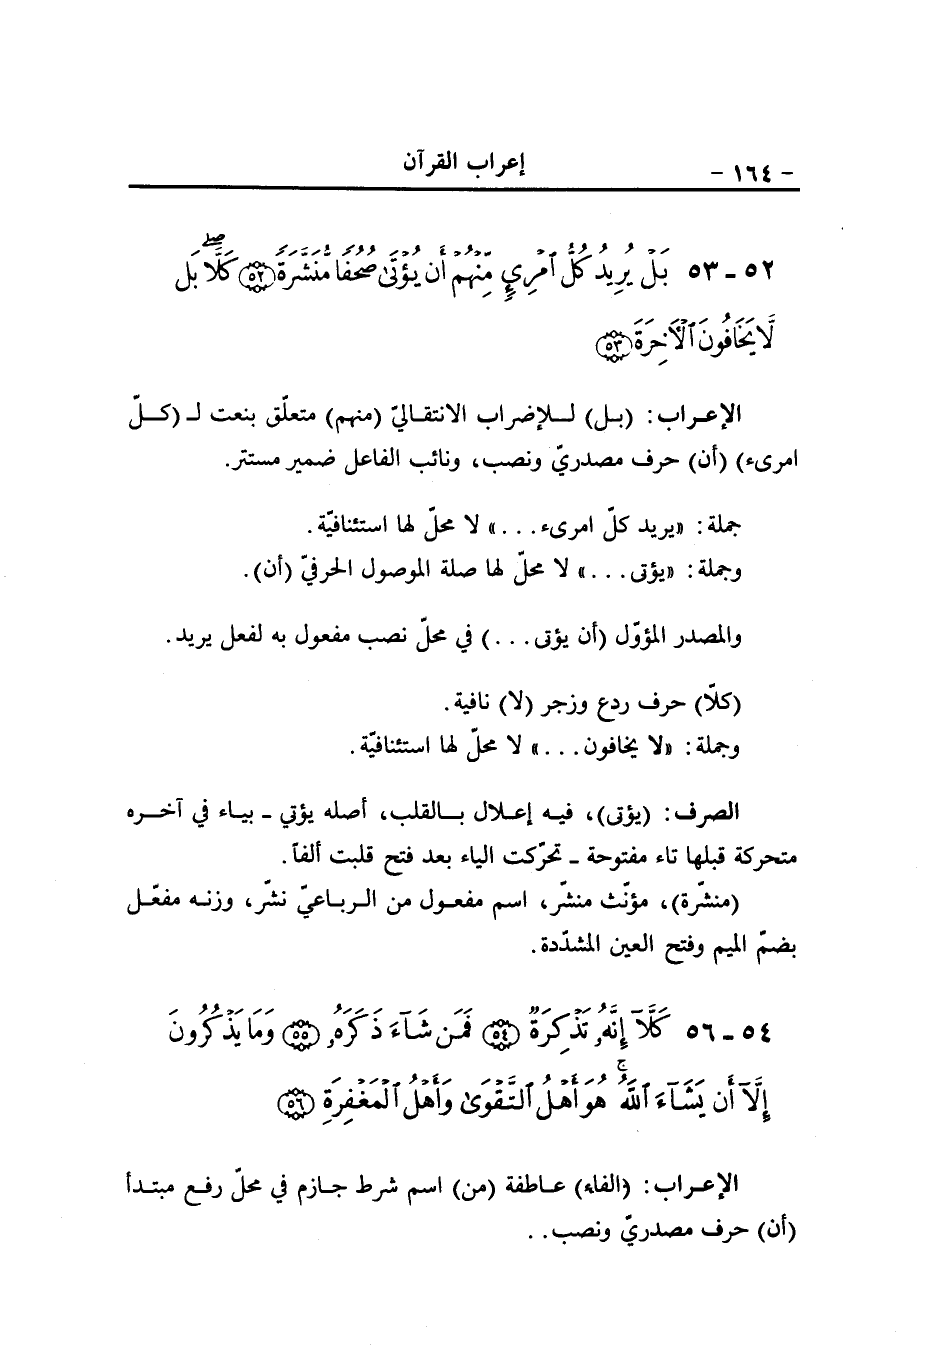 - ١٦٤ -
إعراب القرآن
٥٢ - ٥٣ بَلْ يُرِيدُ كُلُّ ٱمْرِئٍ مِّنْهُمْ أَن يُؤْتَىٰ صُحُفًا مُّنَشَّرَةً ﴿٥٢﴾ كَلَّا ۖ بَل
لَّا يَخَافُونَ ٱلْآخِرَةَ ﴿٥٣﴾
الإعراب: (بل) للإضراب الانتقاليّ (منهم) متعلّق بنعت لـ (كلّ
امرىء) (أن) حرف مصدريّ ونصب، ونائب الفاعل ضمير مستتر.
جملة: «يريد كلّ امرىء...» لا محلّ لها استئنافيّة.
وجملة: «يؤتى...» لا محلّ لها صلة الموصول الحرفيّ (أن).
والمصدر المؤوّل (أن يؤتى...) في محلّ نصب مفعول به لفعل يريد.
(كلّا) حرف ردع وزجر (لا) نافية.
وجملة: «لا يخافون...» لا محلّ لها استئنافيّة.
الصرف: (يؤتى)، فيه إعلال بالقلب، أصله يؤتي - بياء في آخره
متحركة قبلها تاء مفتوحة - تحرّكت الياء بعد فتح قلبت ألفاً.
(منشّرة)، مؤنّث منشّر، اسم مفعول من الرباعيّ نشّر، وزنه مفعّل
بضمّ الميم وفتح العين المشدّدة.
٥٤ - ٥٦ كَلَّآ إِنَّهُۥ تَذْكِرَةٌ ﴿٥٤﴾ فَمَن شَآءَ ذَكَرَهُۥ ﴿٥٥﴾ وَمَا يَذْكُرُونَ
إِلَّآ أَن يَشَآءَ ٱللَّهُ ۚ هُوَ أَهْلُ ٱلتَّقْوَىٰ وَأَهْلُ ٱلْمَغْفِرَةِ ﴿٥٦﴾
الإعراب: (الفاء) عاطفة (من) اسم شرط جازم في محلّ رفع مبتدأ
(أن) حرف مصدريّ ونصب..